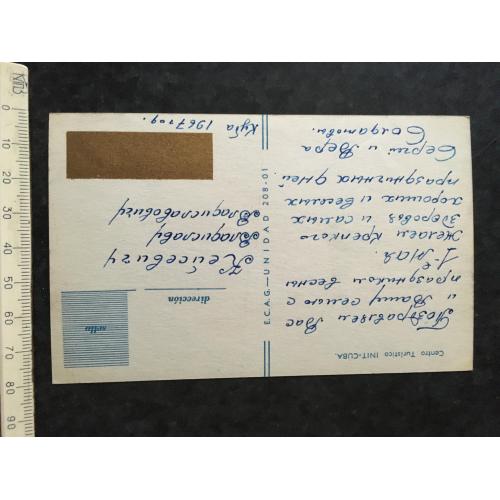 Centro Turístico INIT-CUBA.
Поздравляем Вас
и Вашу семью с
праздником весны
1-е мая.
Желаем крепкого
здоровья и самых
хороших и веселых
праздничных дней
Сергей и Вера
Солдатовы.
E.C.A.G.-UNIDAD 208-01
sello
dirección
Кейсевичу
Владиславу
Владиславовичу
Куба 1967 год.
0 10 20 30 40 50 60 70 80 90